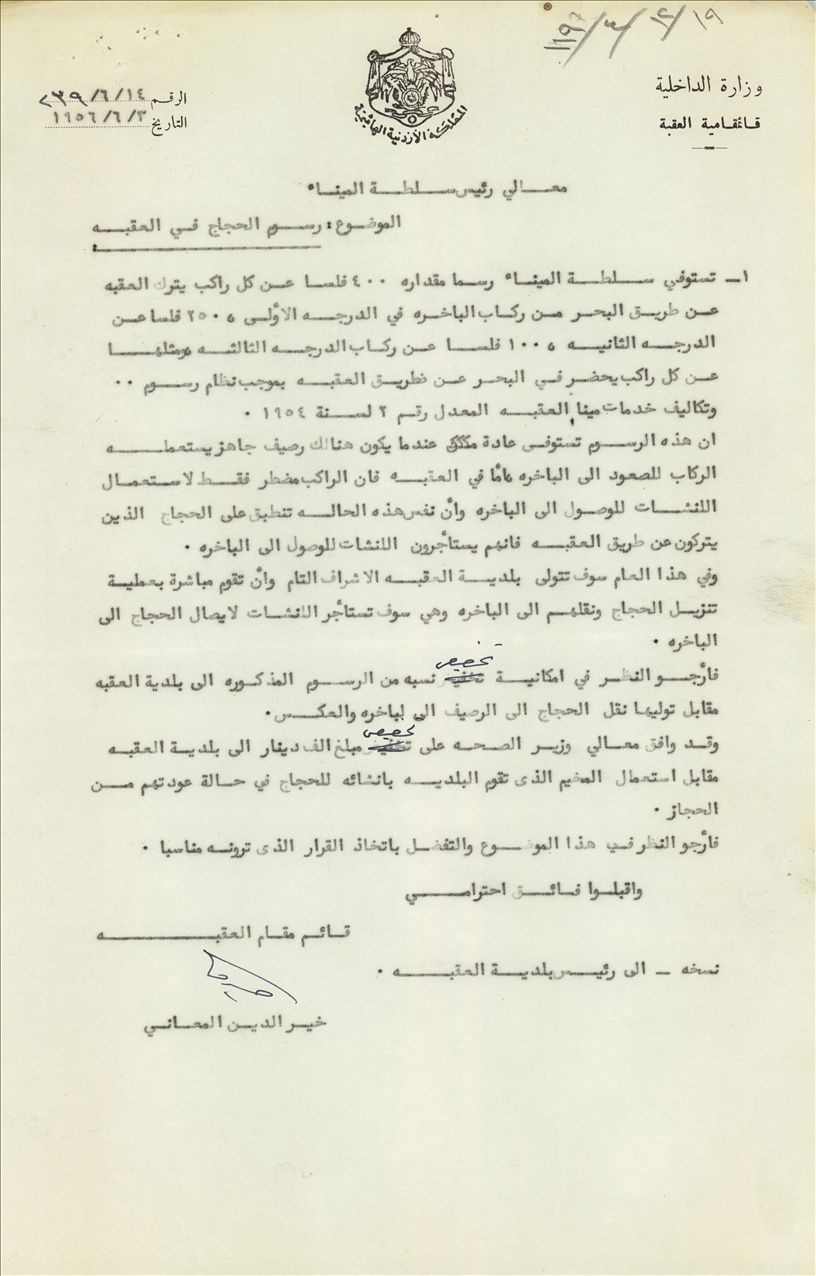 وزارة الداخلية
قائمقامية العقبة
المملكة الأردنية الهاشمية
الرقم ١٤/٦/٢٣٩
التاريخ ٣/٦/١٩٥٦
معالي رئيس سلطة الميناء
الموضوع : رسوم الحجاج في العقبه
١ـ تستوفي سلطة الميناء رسما مقداره ٤٠٠ فلسا عن كل راكب يترك العقبه
عن طريق البحر من ركاب الباخره في الدرجه الأولى و ٢٥٠ فلسا عن
الدرجه الثانيه و ١٠٠ فلسا عن ركاب الدرجه الثالثه ومثلها
عن كل راكب يحضر في البحر عن طريق العقبه بموجب نظام رسوم ٠٠
وتكاليف خدمات مينا العقبه المعدل رقم ٢ لسنة ١٩٥٤ ٠
ان هذه الرسوم تستوفى عادة عندما يكون هنالك رصيف جاهز يستعمله
الركاب للصعود الى الباخره وأما في العقبه فان الراكب مضطر فقط لاستعمال
اللنشات للوصول الى الباخره وأن نفس هذه الحاله تنطبق على الحجاج الذين
يتركون عن طريق العقبه فانهم يستأجرون اللنشات للوصول الى الباخره ٠
وفي هذا العام سوف تتولى بلدية العقبه الاشراف التام وأن تقوم مباشرة بعملية
تنزيل الحجاج ونقلهم الى الباخره وهي سوف تستأجر اللنشات لايصال الحجاج الى
الباخره ٠
فأرجو النظر في امكانية تخصيص نسبه من الرسوم المذكوره الى بلدية العقبه
مقابل توليها نقل الحجاج الى الرصيف الى لباخره والعكس٠
وقد وافق معالي وزير الصحه على تخصيص مبلغ الف دينار الى بلدية العقبه
مقابل استعمال المخيم الذى تقوم البلديه بانشائه للحجاج في حالة عودتهم من
الحجاز ٠
فأرجو النظر في هذا الموضوع والتفضل باتخاذ القرار الذى ترونه مناسبا ٠
واقبلوا فائق احترامي
قائم مقام العقبه
نسخه ـ الى رئيس بلدية العقبه ٠
خير الدين المعاني